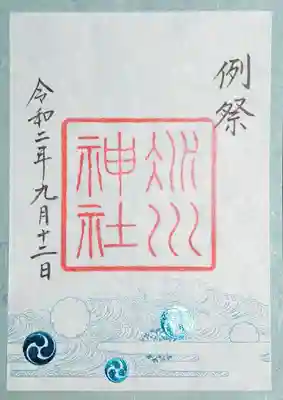 例祭
氷川
神社
令和二年九月十二日